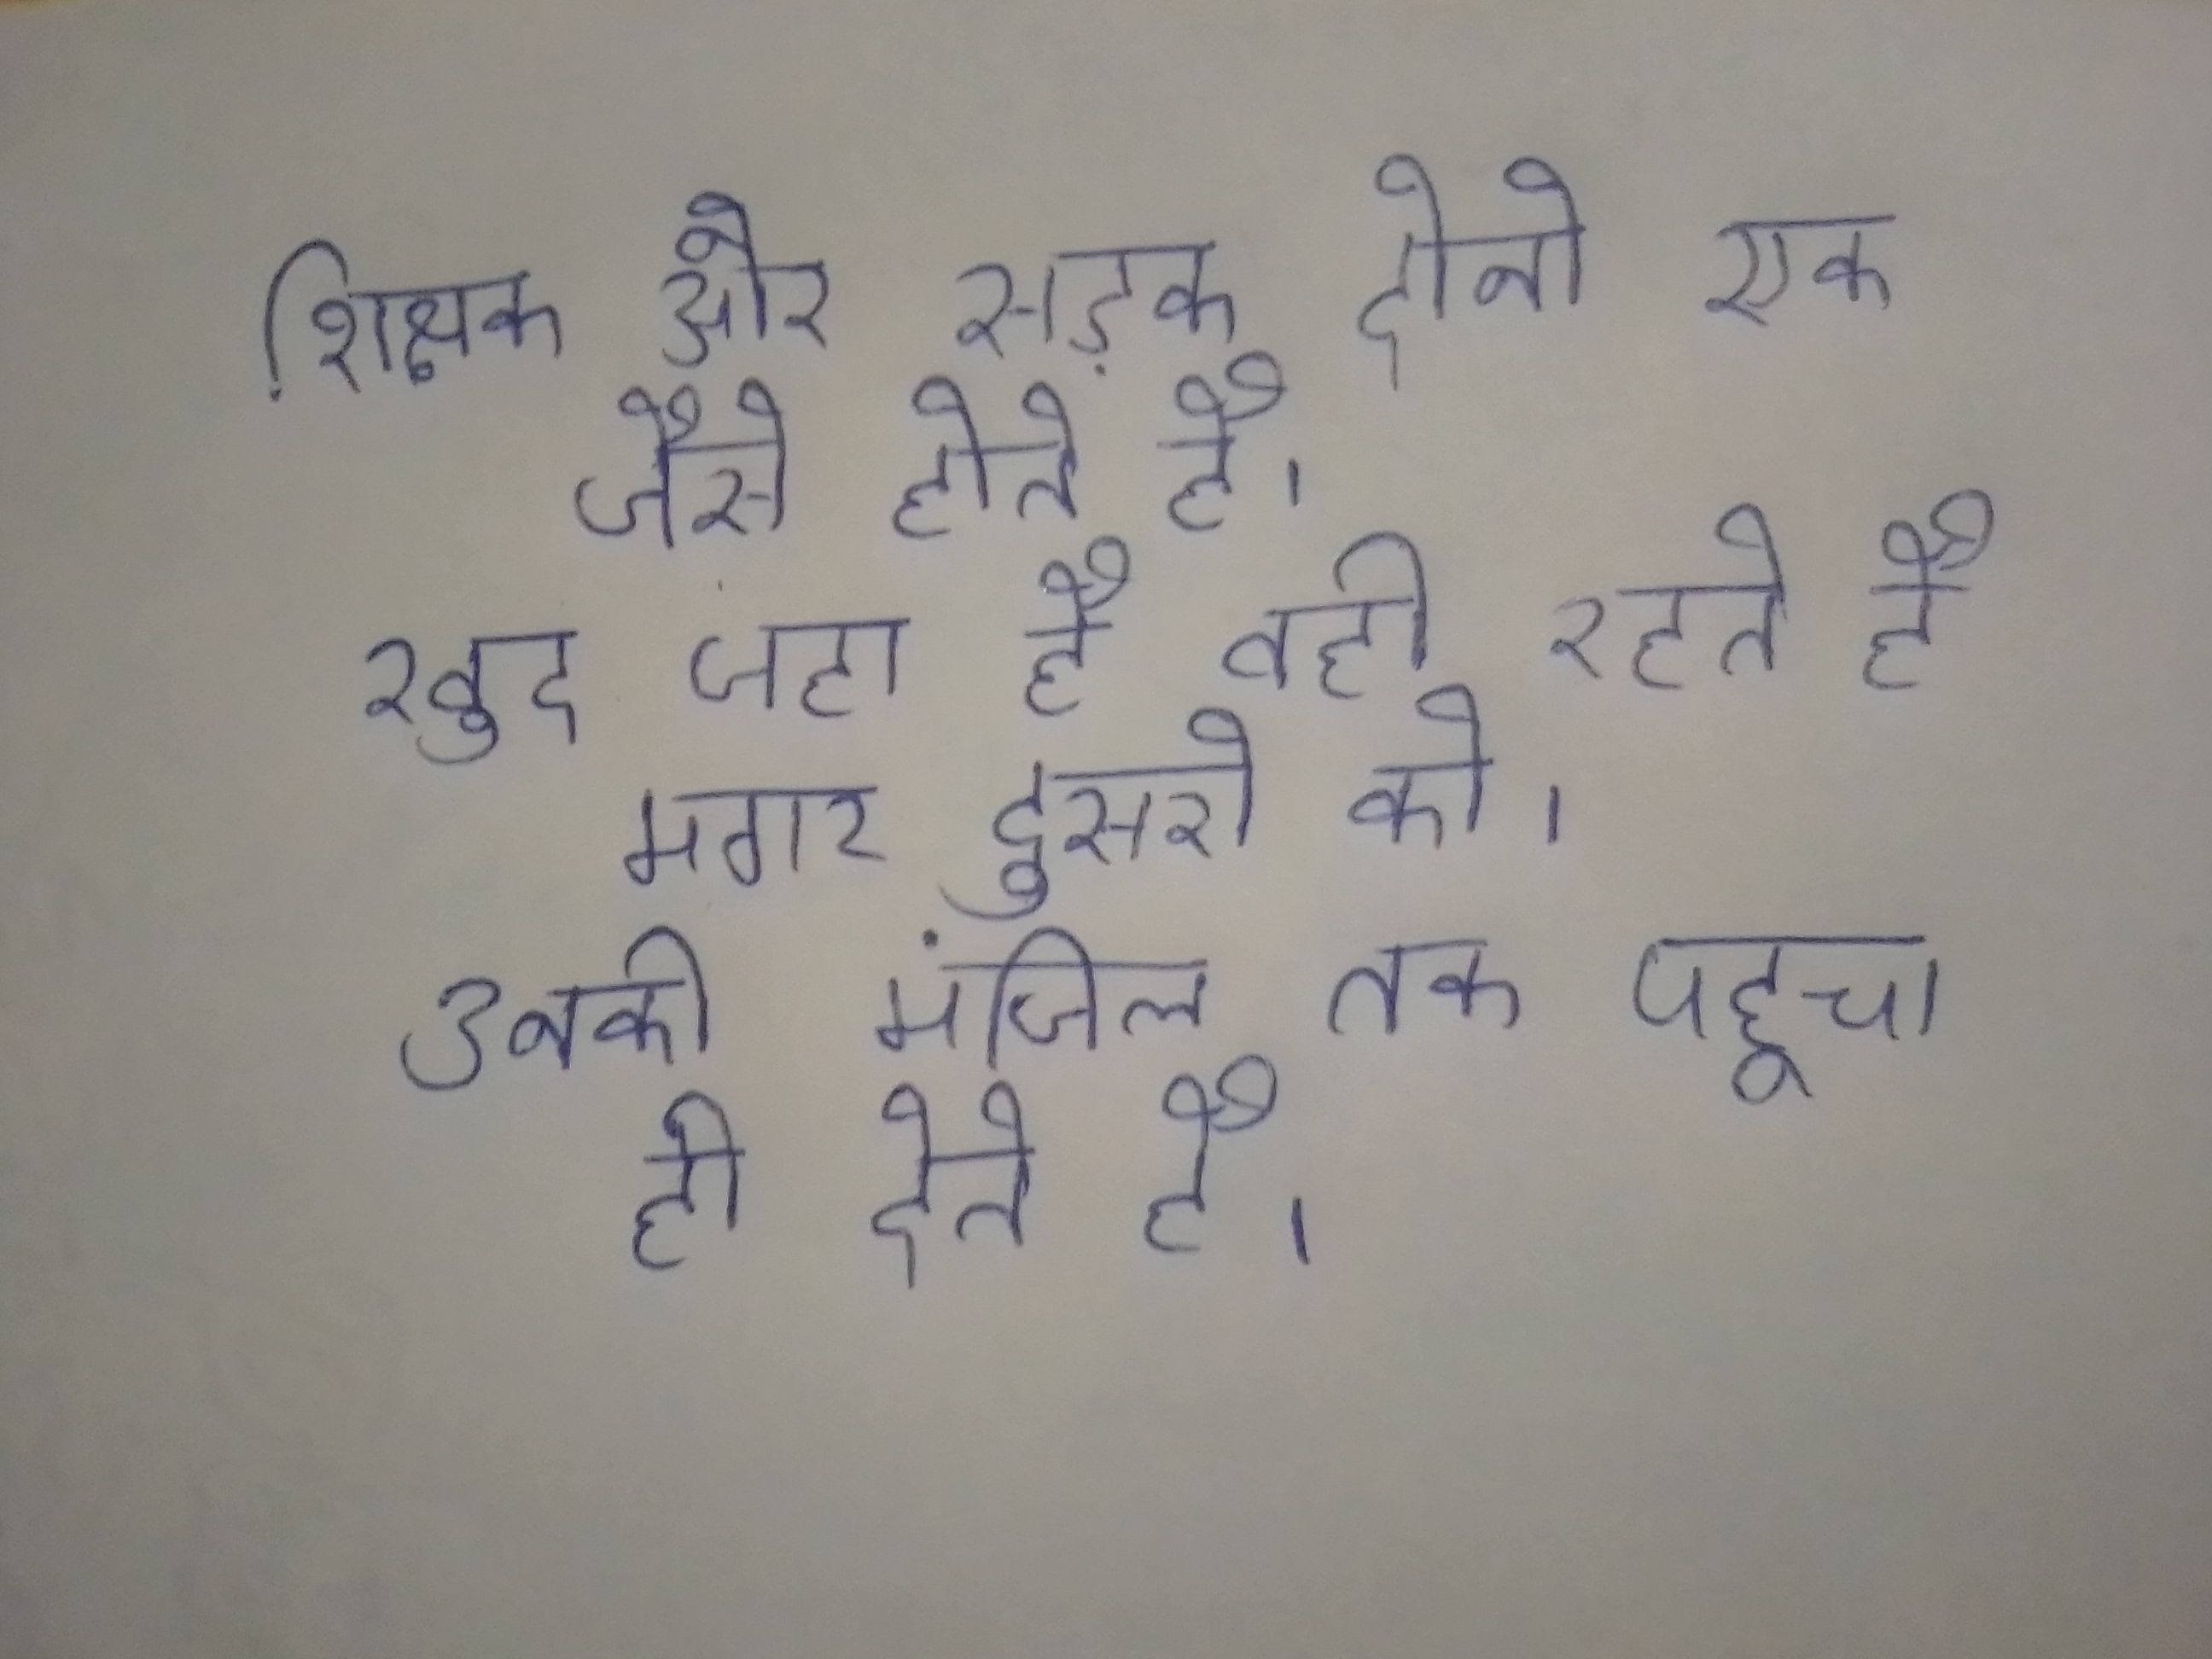 शिक्षक और सड़क दोनो एक
जैसे होते है।
खुद जहा है वही रहते है
मगर दुसरो को।
उनकी मंजिल तक पहूचा
ही देते है।